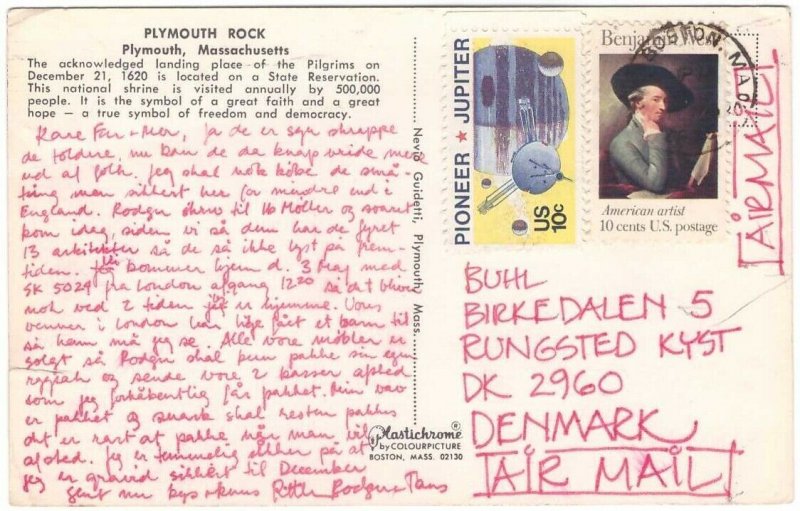 PLYMOUTH ROCK
Plymouth, Massachusetts
The acknowledged landing place of the Pilgrims on
December 21, 1620 is located on a State Reservation.
This national shrine is visited annually by 500,000
people. It is the symbol of a great faith and a great
hope — a true symbol of freedom and democracy.
Kære Far + Mor, ja de er sgu skrappe
de toldere, nu kan de da knap vride mere
ud af folk. Jeg skal nok købe de små-
ting men sikkert her for mindre end i
England. Rodger skrev til Ib Møller og svaret
kom idag, siden vi så dem har de fyret
13 arkitekter så de så ikke lyst på frem-
tiden. kommer hjem d. 3 Maj med
SK 502 fra London afgang 12²⁰ så det bliver
nok ved 2 tiden jeg er hjemme. Vores
venner i London har lige fået et barn til
så ham må jeg se. Alle vore møbler er
solgt så Rodger skal kun pakke sin egen
rygsæk og sende vore 2 kasser afsted
som jeg forhåbentlig får pakket. Min
er pakket og snart skal resten pakkes
det er rart at pakke når man vil
afsted. Jeg er temmelig sikker på at
jeg er gravid sikkert til December
nu kys + knus Rodger + Tans
Nevio Guidetti, Plymouth, Mass.
Plastichrome ®
by COLOURPICTURE
BOSTON, MASS. 02130
PIONEER ★ JUPITER
US 10c
Benjamin West
American artist
10 cents U.S. postage
BOSTON, MA
AIRMAIL
BUHL
BIRKEDALEN 5
RUNGSTED KYST
DK 2960
DENMARK
AIR MAIL